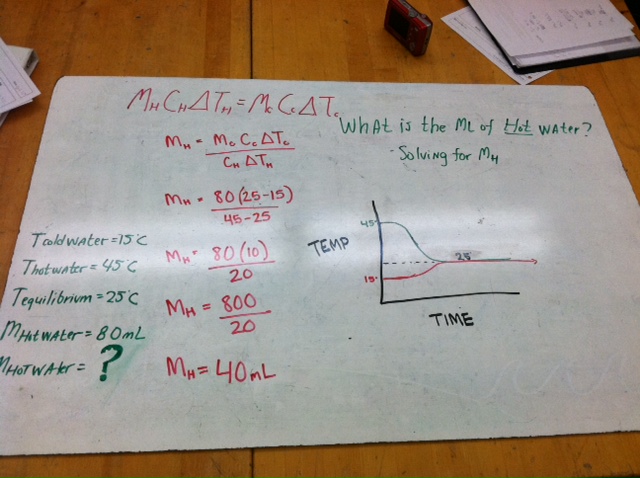 M_H C_H ΔT_H = M_c C_c ΔT_c
What is the ML of Hot water?
- Solving for M_H
M_H = M_c C_c ΔT_c
C_H ΔT_H
M_H = 80(25-15)
45-25
M_H = 80(10)
20
M_H = 800
20
M_H = 40mL
Tcoldwater = 15°C
Thotwater = 45°C
Tequilibrium = 25°C
MHotwater = 80mL
MHOTWAter = ?
TEMP
45
25
15
TIME